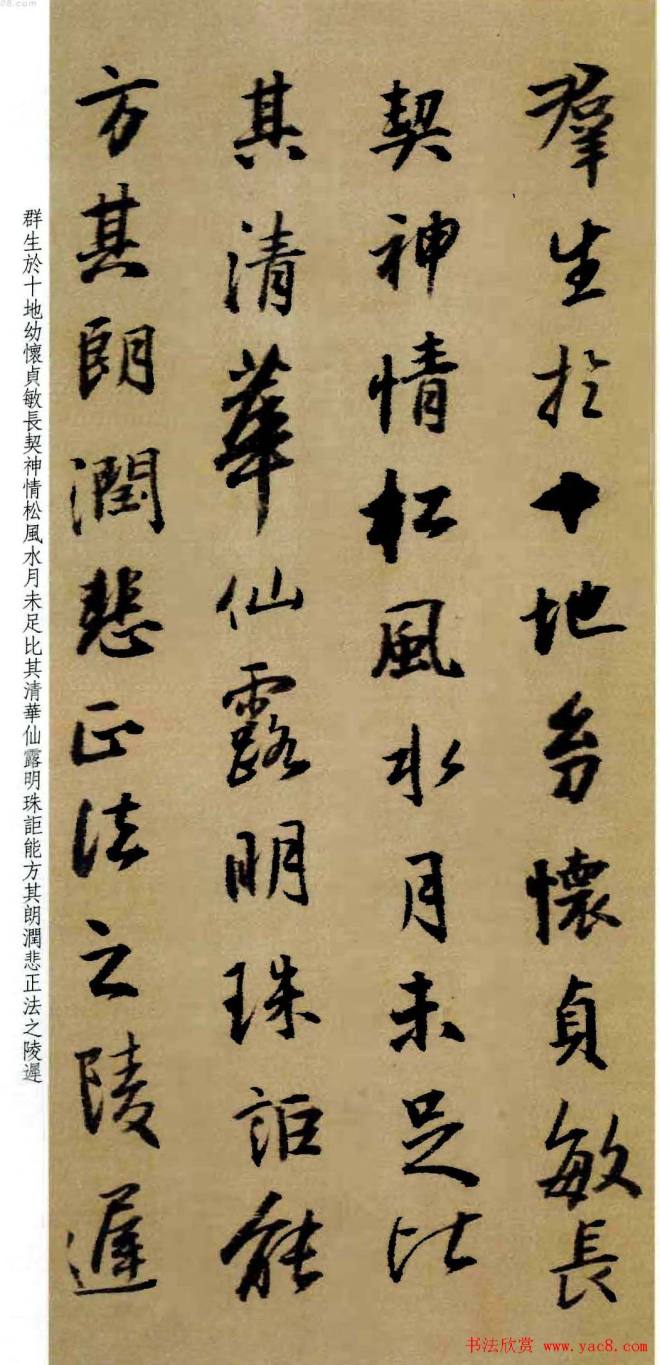 羣生於十地幼懷貞敏長
契神情松風水月未足比
其清華仙露明珠詎能
方其朗潤悲正法之陵遲
群生於十地幼懷貞敏長契神情松風水月未足比其清華仙露明珠詎能方其朗潤悲正法之陵遲
书法欣赏 www.yac8.com